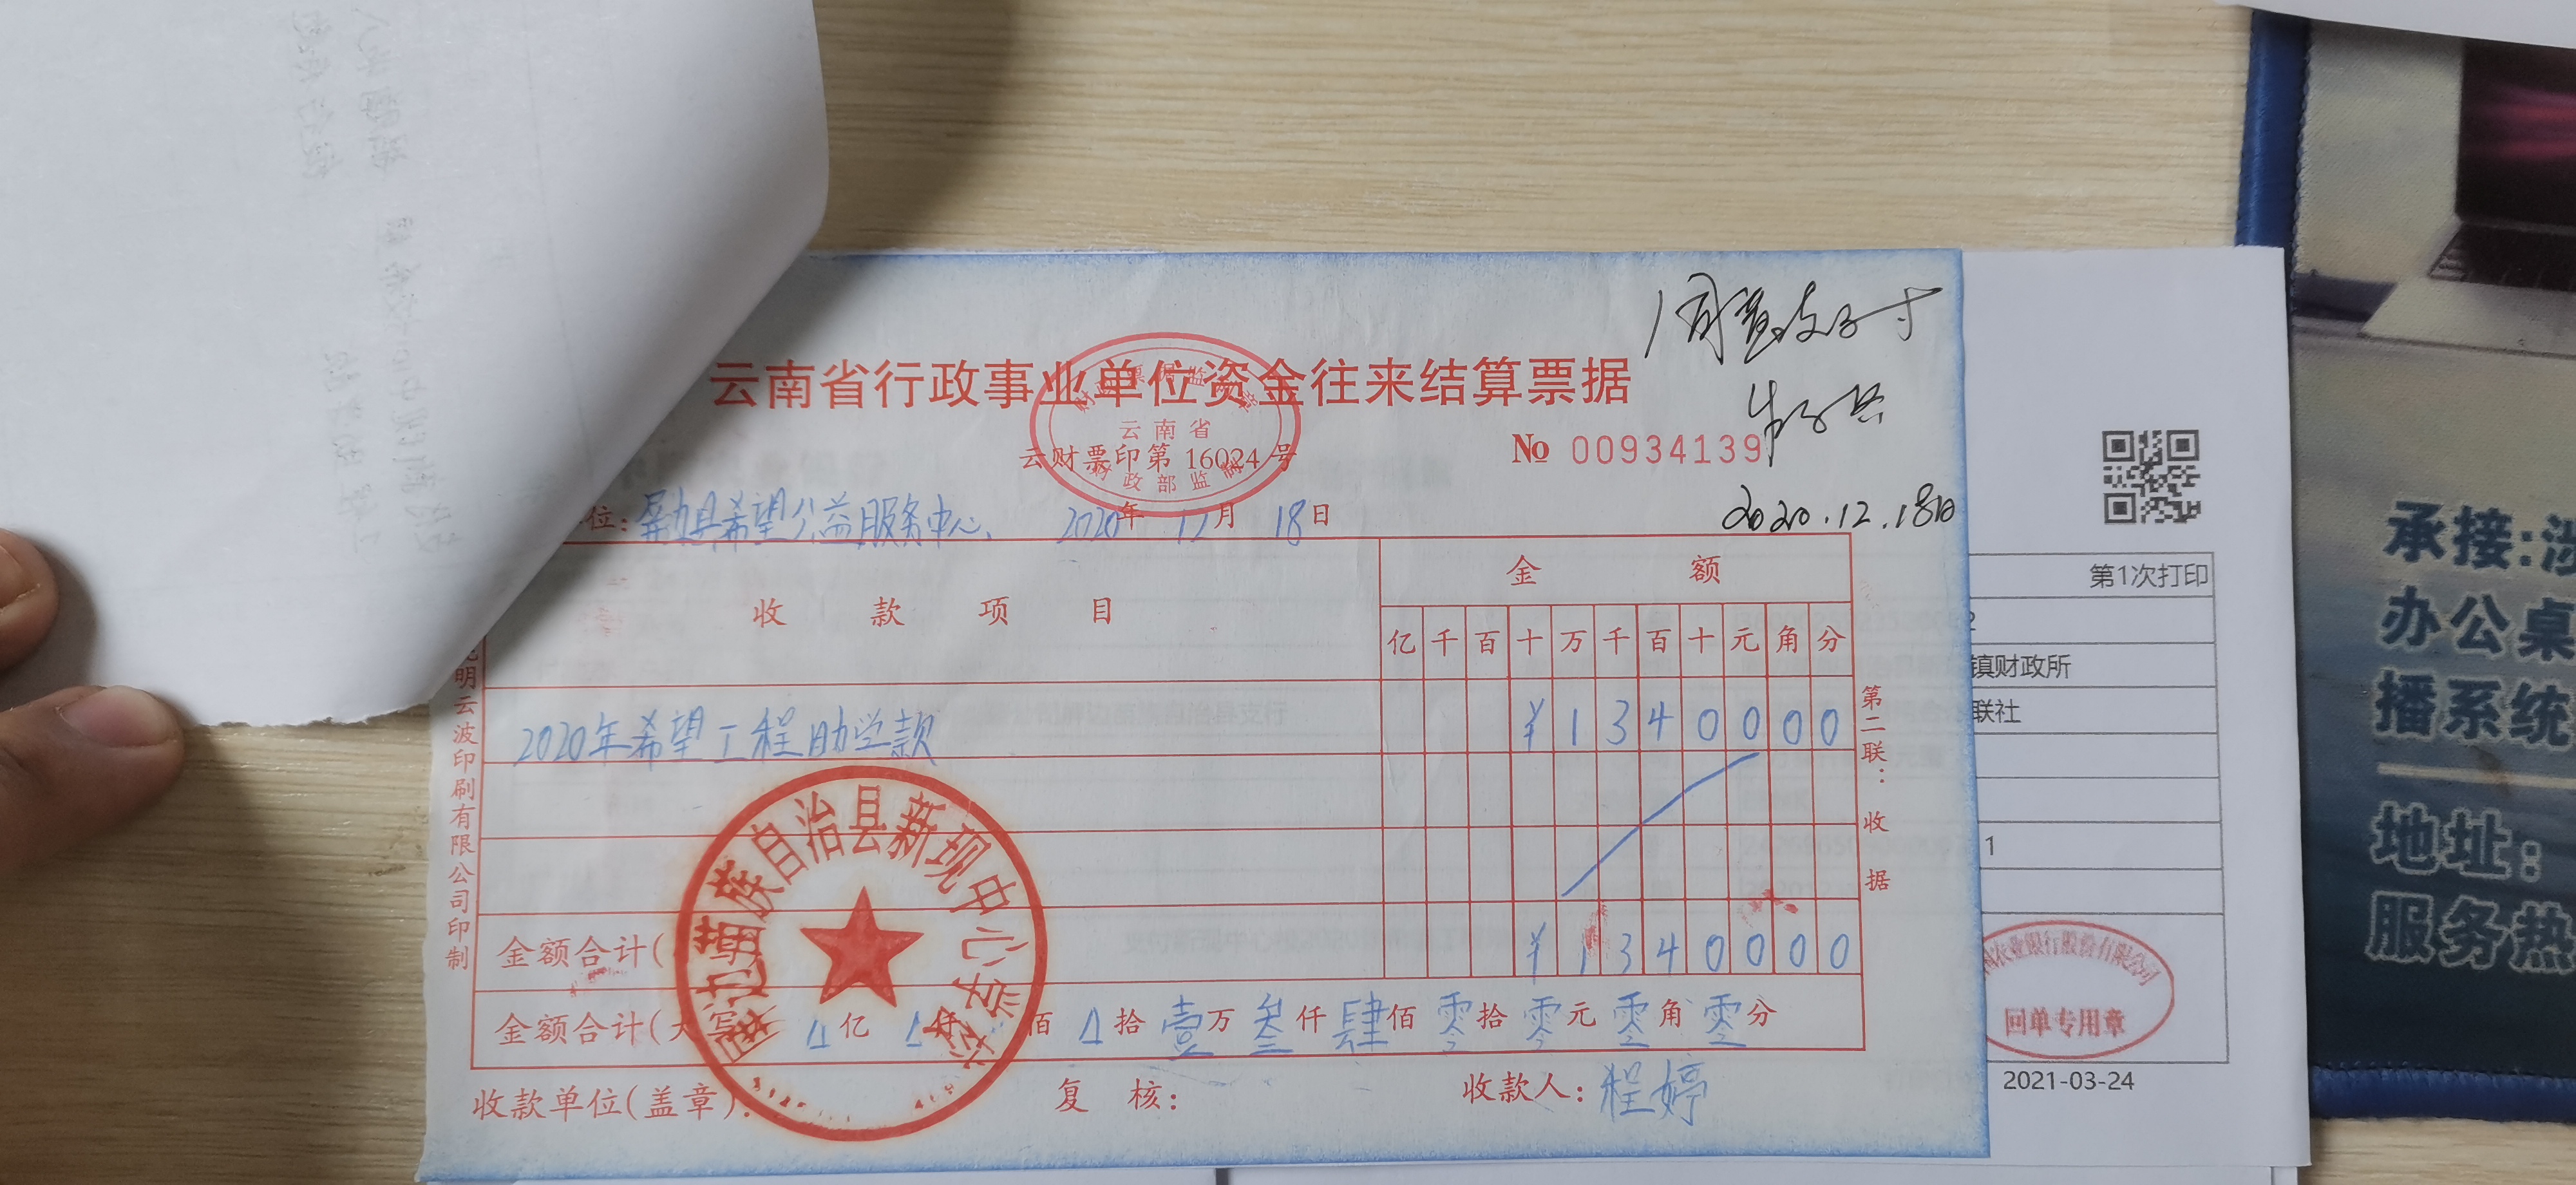 同意支付
云南省行政事业单位资金往来结算票据
云南省
云财票印第 16024 号
财政部监制
№ 00934139
2020.12.18日
位：屏边县希望公益服务中心
2020年 12月 18日
收款项目
金额
亿 千 百 十 万 千 百 十 元 角 分
2020年希望工程助学款
¥ 1 3 4 0 0 0 0
金额合计(
¥ 1 3 4 0 0 0 0
金额合计(大写
亿 仟 佰 拾 壹万 叁仟 肆佰 零拾 零元 零角 零分
屏边苗族自治县新现中心学校
收款单位(盖章)：
复核：
收款人：程婷
明云波印刷有限公司印制
第二联：收据
第1次打印
2
镇财政所
联社
1
农业银行股份有限公司
回单专用章
2021-03-24
承接:涉
办公桌
播系统
地址:
服务热